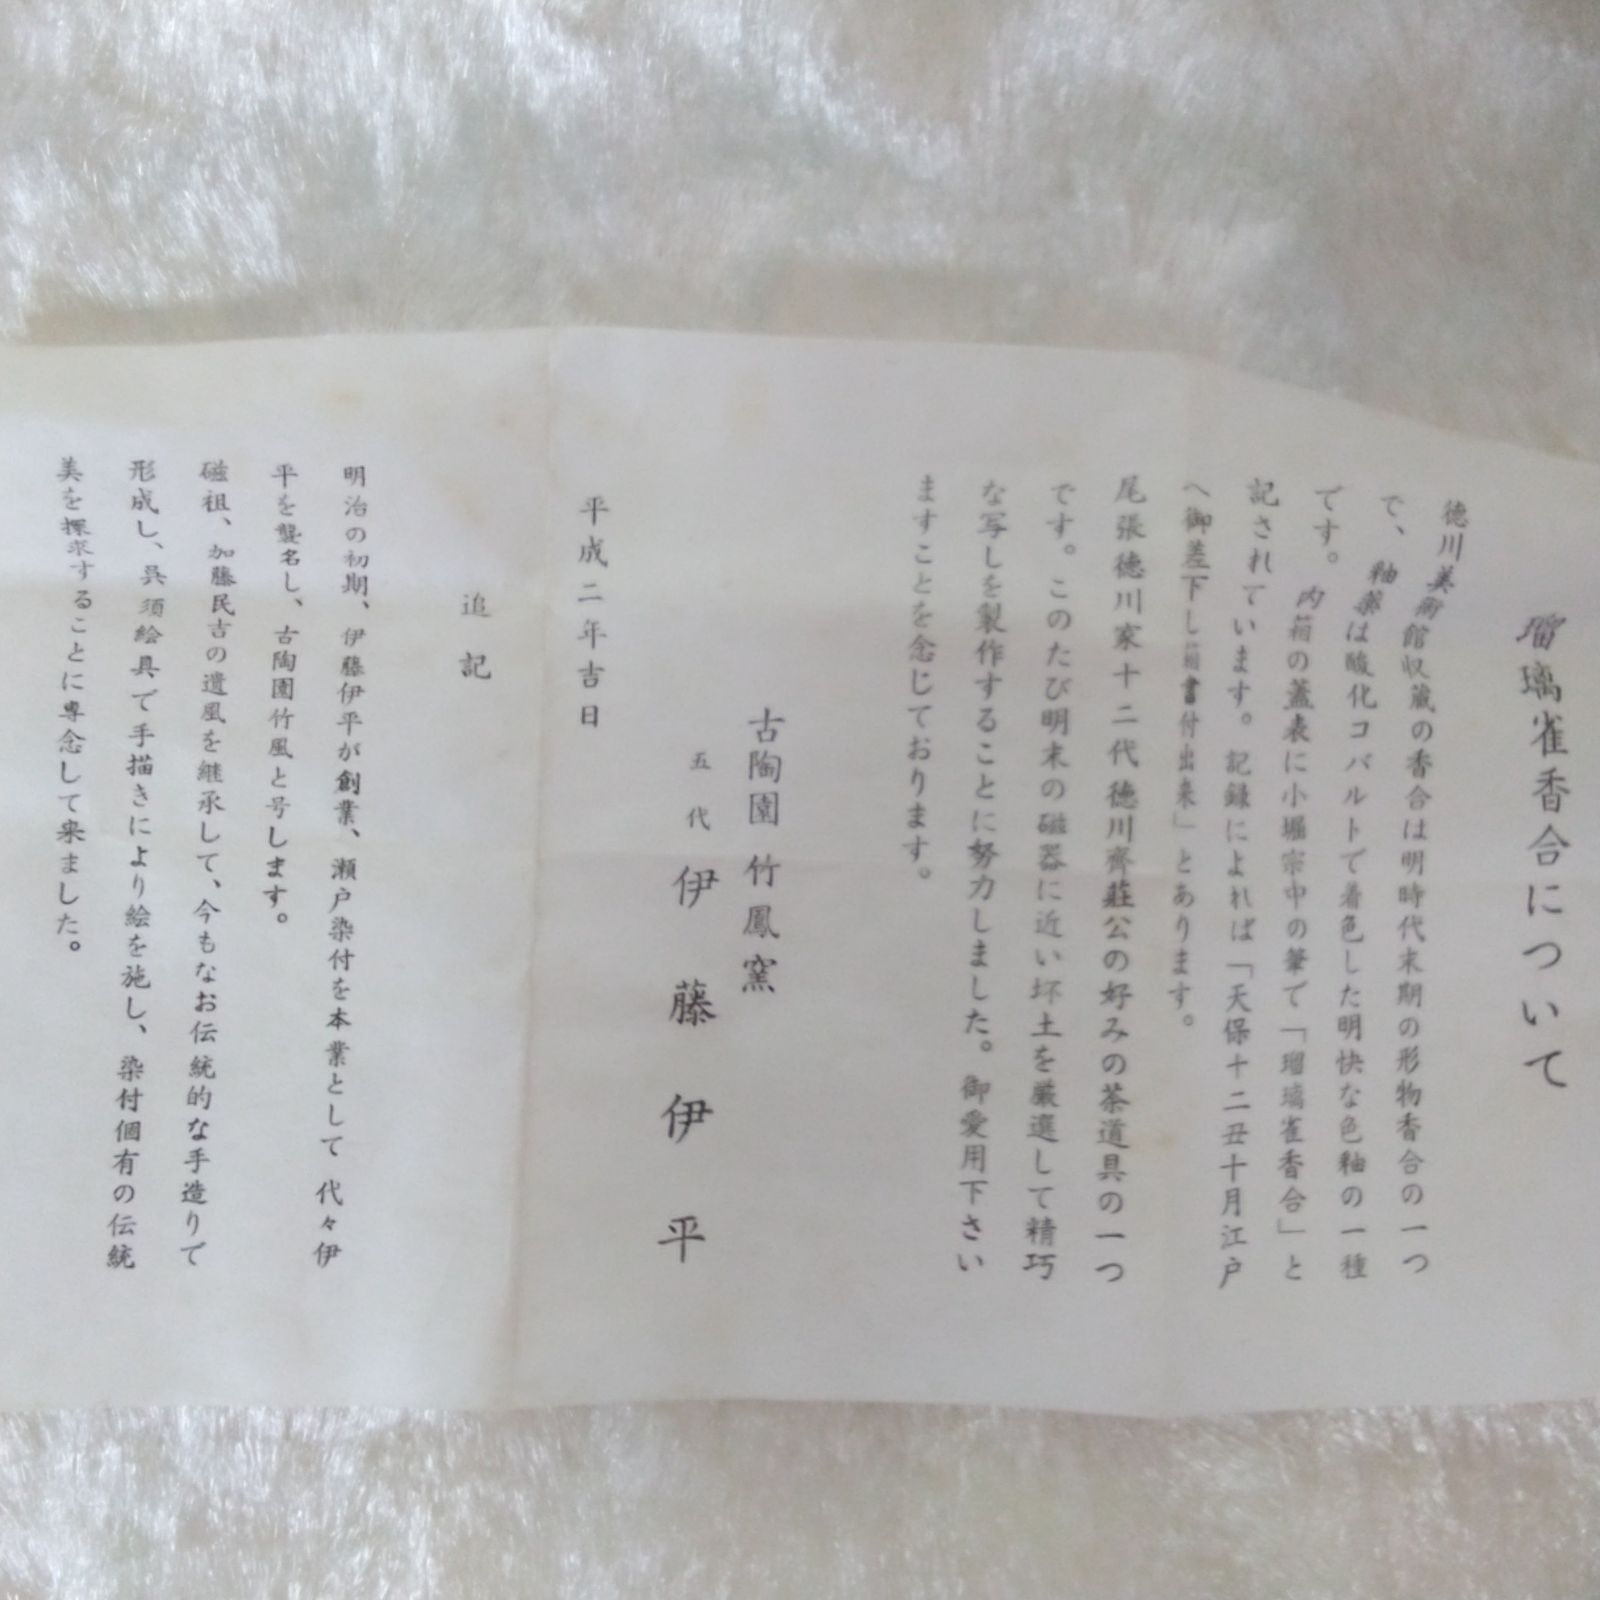 瑠璃雀香合について
徳川美術館収蔵の香合は明時代末期の形物香合の一つ
で、釉薬は酸化コバルトで着色した明快な色釉の一種
です。内箱の蓋表に小堀宗中の筆で「瑠璃雀香合」と
記されています。記録によれば「天保十二丑十月江戸
へ御差下し箱書付出来」とあります。
尾張徳川家十二代徳川齊莊公の好みの茶道具の一つ
です。このたび明末の磁器に近い坏土を厳選して精巧
な写しを製作することに努力しました。御愛用下さい
ますことを念じております。
古陶園 竹鳳窯
五代 伊藤伊平
平成二年吉日
追記
明治の初期、伊藤伊平が創業、瀬戸染付を本業として代々伊
平を襲名し、古陶園竹風と号します。
磁祖、加藤民吉の遺風を継承して、今もなお伝統的な手造りで
形成し、呉須絵具で手描きにより絵を施し、染付個有の伝統
美を探求することに専念して来ました。